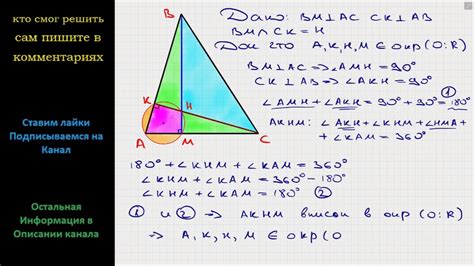 кто смог решить
сам пишите в
комментариях
Ставим лайки
Подписываемся на
Канал
Остальная
Информация в
Описании канала
B
K
H
A
M
C
Дано: BM⊥AC CK⊥AB
BM∩CK = H
Док что A, K, H, M ∈ окр (O; R)
BM⊥AC ⇒ ∠AMH = 90°
CK⊥AB ⇒ ∠AKH = 90°
∠AMH + ∠AKH = 90° + 90° = 180° ①
AKHM: ∠AKH + ∠KHM + ∠HMA +
+ ∠KAM = 360°
180° + ∠KHM + ∠KAM = 360°
∠KHM + ∠KAM = 360° - 180°
∠KHM + ∠KAM = 180° ②
① и ② ⇒ AKHM вписан в окр (O; R)
⇒ A, K, H, M ∈ окр (O